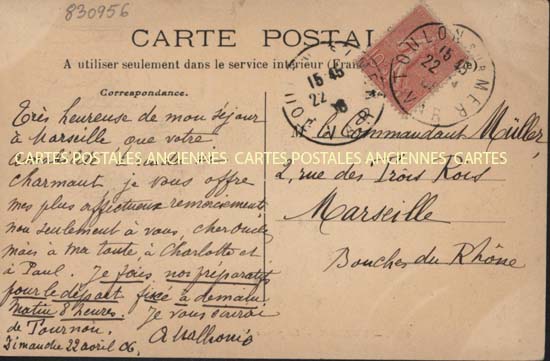 830956
CARTE POSTALE
A utiliser seulement dans le service intérieur (Fran
Correspondance.
TOULON SUR MER
VAR
15 45
22
15 45
22
Très heureuse de mon séjour
à Marseille que votre
CARTES POSTALES ANCIENNES CARTES POSTALES ANCIENNES CARTES
charmant, je vous offre
mes plus affectueux remerciements
non seulement à vous, cher oncle
mais à ma tante, à Charlotte et
à Paul. Je fais nos préparatifs
pour le départ fixé à demain
matin 8 heures. Je vous écrirai
de Tournon.
Dimanche 22 avril 06.
M. le Commandant Müller,
2, rue des Trois Rois
Marseille
Bouches du Rhône